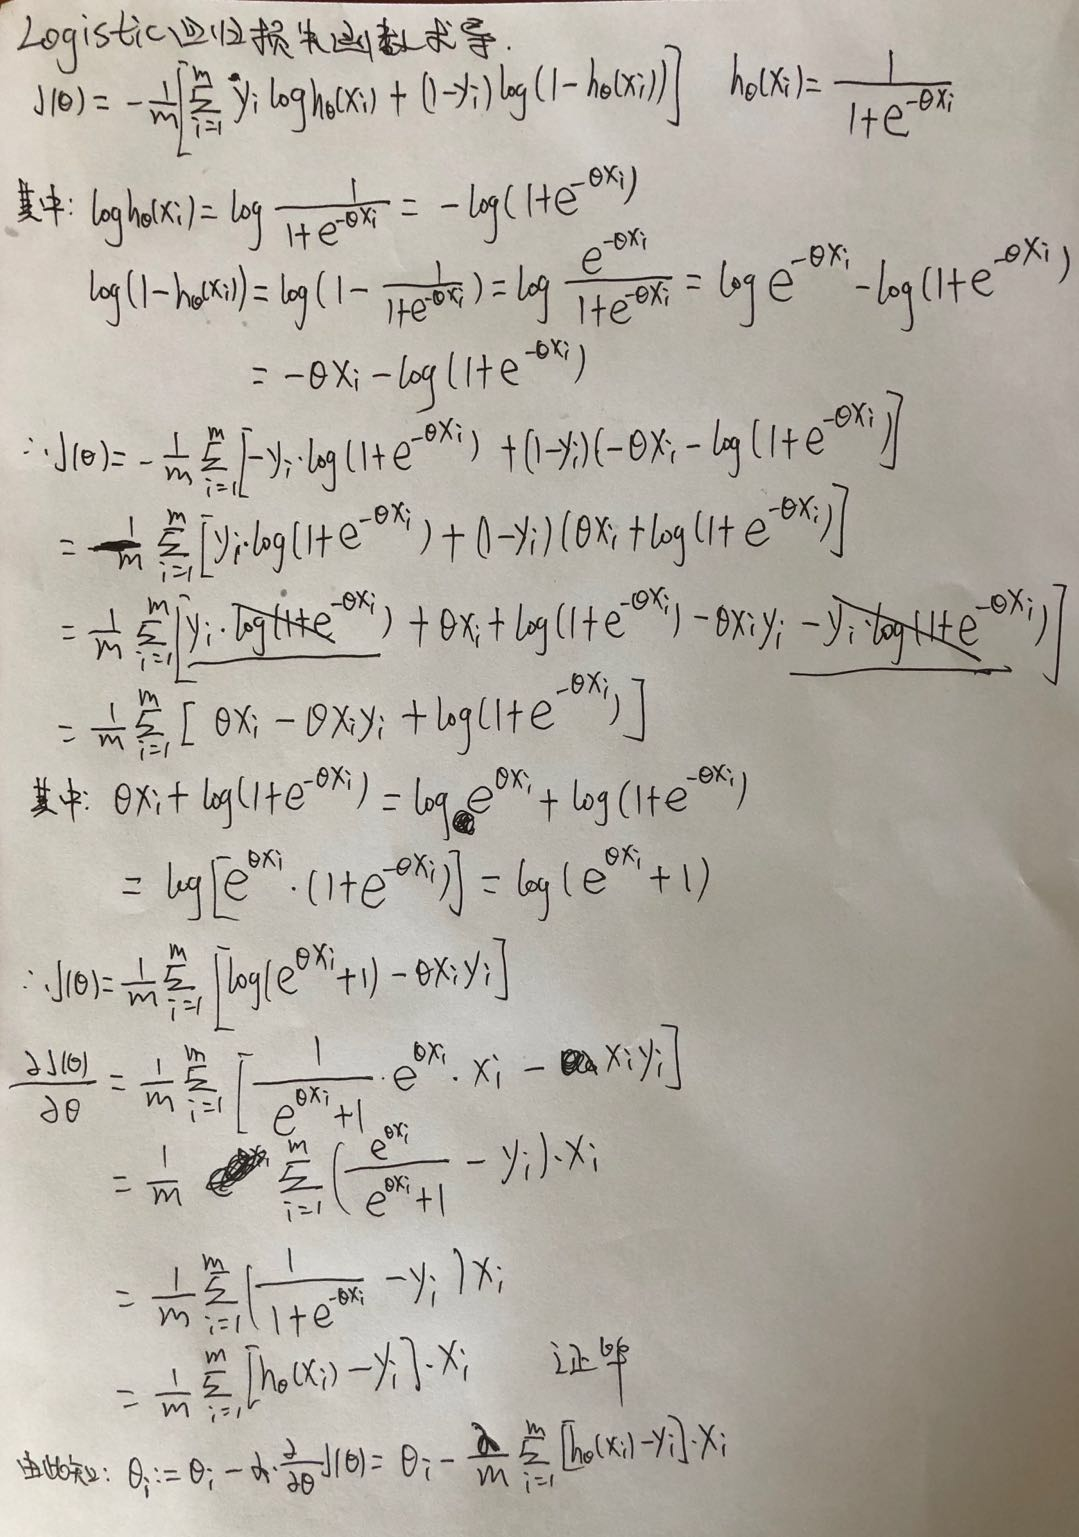 Logistic回归损失函数求导.
J(θ) = -1/m[∑_{i=1}^{m} y_i log h_θ(x_i) + (1-y_i) log(1-h_θ(x_i))] h_θ(x_i) = 1/(1+e^{-θx_i})
其中: log h_θ(x_i) = log 1/(1+e^{-θx_i}) = -log(1+e^{-θx_i})
log(1-h_θ(x_i)) = log(1 - 1/(1+e^{-θx_i})) = log e^{-θx_i}/(1+e^{-θx_i}) = log e^{-θx_i} - log(1+e^{-θx_i})
= -θx_i - log(1+e^{-θx_i})
∴J(θ) = -1/m ∑_{i=1}^{m} [-y_i·log(1+e^{-θx_i}) + (1-y_i)(-θx_i - log(1+e^{-θx_i})]
= 1/m ∑_{i=1}^{m} [y_i·log(1+e^{-θx_i}) + (1-y_i)(θx_i + log(1+e^{-θx_i})]
= 1/m ∑_{i=1}^{m} [y_i·log(1+e^{-θx_i}) + θx_i + log(1+e^{-θx_i}) - θx_iy_i - y_i·log(1+e^{-θx_i})]
= 1/m ∑_{i=1}^{m} [θx_i - θx_iy_i + log(1+e^{-θx_i})]
其中: θx_i + log(1+e^{-θx_i}) = log e^{θx_i} + log(1+e^{-θx_i})
= log[e^{θx_i}·(1+e^{-θx_i})] = log(e^{θx_i}+1)
∴J(θ) = 1/m ∑_{i=1}^{m} [log(e^{θx_i}+1) - θx_iy_i]
∂J(θ)/∂θ = 1/m ∑_{i=1}^{m} [1/(e^{θx_i}+1)·e^{θx_i}·x_i - x_iy_i]
= 1/m ∑_{i=1}^{m} (e^{θx_i}/(e^{θx_i}+1) - y_i)·x_i
= 1/m ∑_{i=1}^{m} (1/(1+e^{-θx_i}) - y_i)x_i
= 1/m ∑_{i=1}^{m} [h_θ(x_i) - y_i]·x_i 证毕
由此知: θ_i := θ_i - α·∂/∂θ J(θ) = θ_i - α/m ∑_{i=1}^{m} [h_θ(x_i) - y_i]·x_i